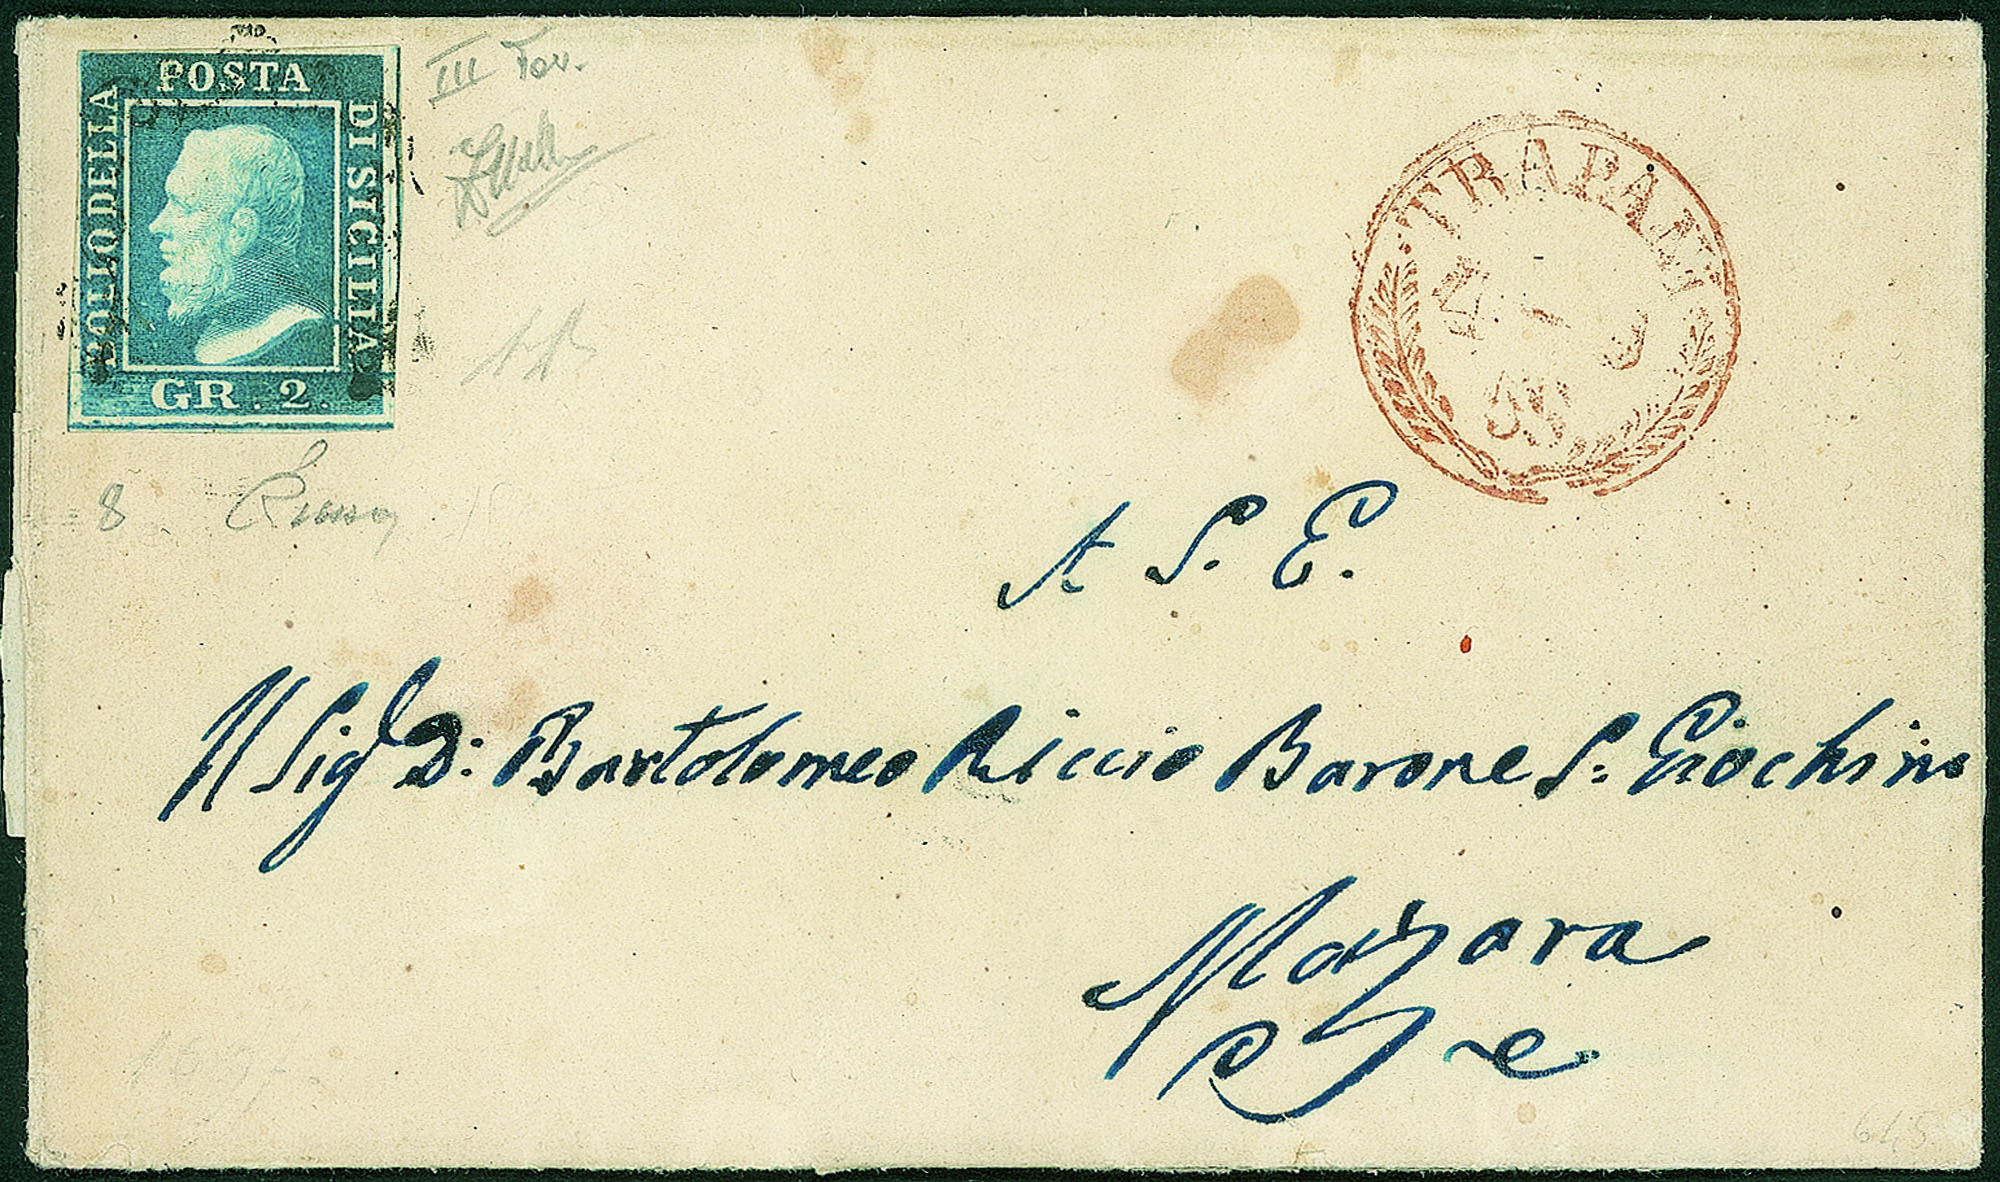 POSTA
BOLLO DELLA
DI SICILIA
GR. 2.
III Tav.
8
TRAPANI
A S. E.
Il Sig. D: Bartolomeo Riccio Barone S: Giochino
Mazara